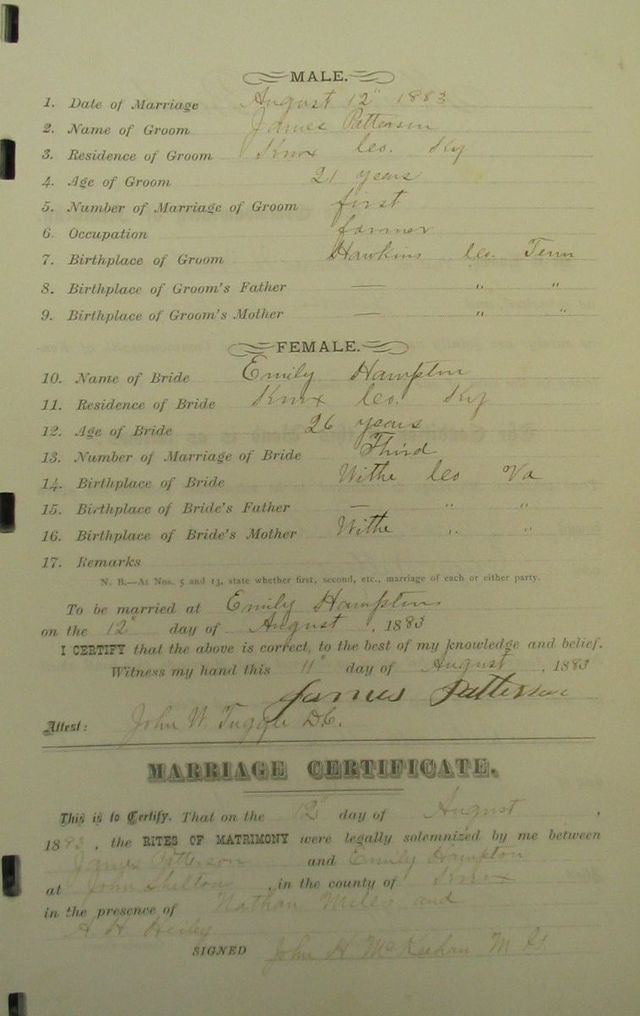 MALE.
1. Date of Marriage August 12" 1883
2. Name of Groom James Patterson
3. Residence of Groom Knox Co. Ky
4. Age of Groom 21 years
5. Number of Marriage of Groom first
6. Occupation farmer
7. Birthplace of Groom Hawkins Co. Tenn
8. Birthplace of Groom's Father — " "
9. Birthplace of Groom's Mother — " "
FEMALE.
10. Name of Bride Emily Hampton
11. Residence of Bride Knox Co. Ky
12. Age of Bride 26 years
13. Number of Marriage of Bride Third
14. Birthplace of Bride Withe Co Va
15. Birthplace of Bride's Father — " "
16. Birthplace of Bride's Mother Withe " "
17. Remarks
N. B.—At Nos. 5 and 13, state whether first, second, etc., marriage of each or either party.
To be married at Emily Hamptons
on the 12" day of August , 1883
I CERTIFY that the above is correct, to the best of my knowledge and belief.
Witness my hand this 11" day of August , 1883
James Patterson
Attest: John W. Tuggle D.C.
MARRIAGE CERTIFICATE.
This is to Certify. That on the 12" day of August ,
1883 , the RITES OF MATRIMONY were legally solemnized by me between
James Patterson and Emily Hampton
at John Sheltons , in the county of Knox
in the presence of Nathan Miles and
A H
SIGNED John H McKeehan M G